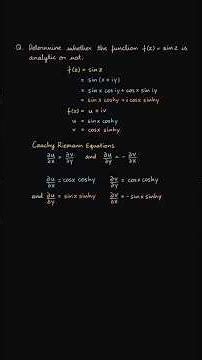 Q. Determine whether the function f(z) = sin z is
analytic or not.
f(z) = sin z
= sin (x + iy)
= sin x cos iy + cos x sin iy
= sin x cos hy + i cos x sin hy
f(z) = u + iv
u = sin x cos hy
v = cos x sin hy
Cauchy Riemann Equations
∂u/∂x = ∂v/∂y and ∂u/∂y = - ∂v/∂x
∂u/∂x = cos x cos hy ∂v/∂y = cos x cos hy
and ∂u/∂y = sin x sin hy ∂v/∂x = - sin x sin hy